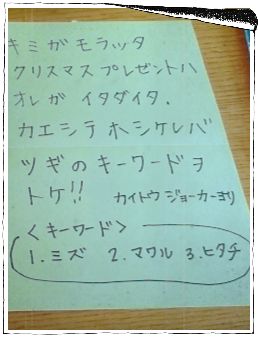 キミガモラッタ
クリスマスプレゼントハ
オレガイタダイタ.
カエシテホシケレバ
ツギのキーワードヲ
トケ!! カイトウジョーカーヨリ
<キーワード>
1.ミズ 2.マワル 3.ヒタチ